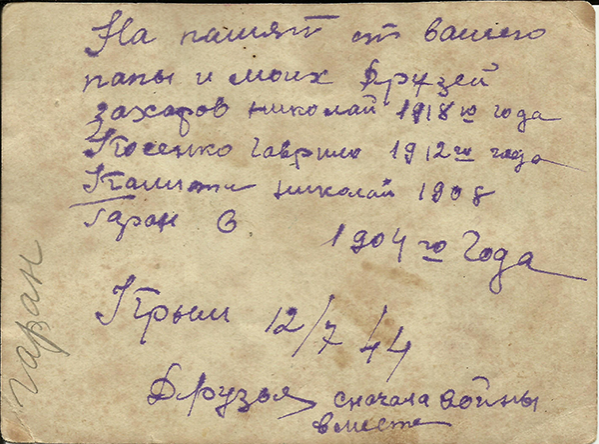 На памят от вашего
папы и моих Друзей
захаров николай 1918 го года
Косенко гаврило 1912 го года
николай 1908
Гаран С 1904 го Года
Крым 12/7 44
Друзья сначала войны
вместе
гаран